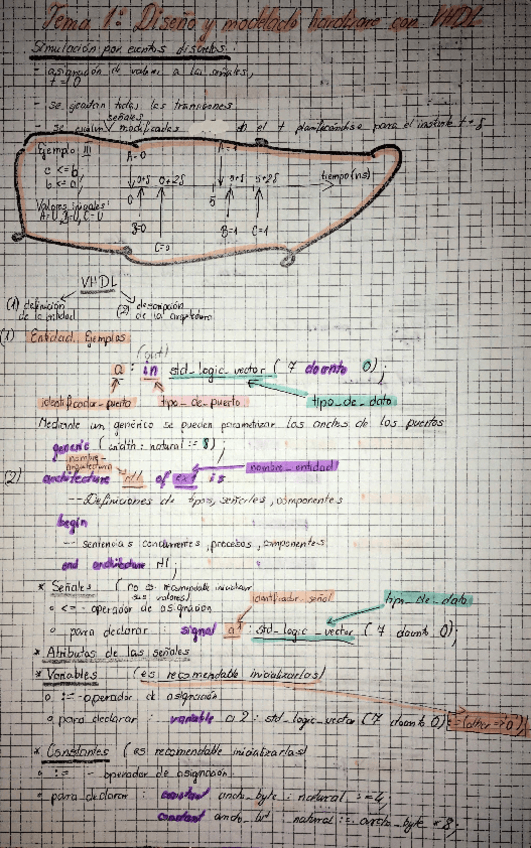 Tema 1: Diseño y modelado hardware con VHDL
Simulación por eventos discretos
- asignación de valores a las señales,
t = 0
- se ejecutan todas las transiciones
señales
modificadas en el t planificándose para el instante t + δ
Ejemplo III
A=0
c <= b,
b <= a,
0+δ 0+2δ
5+δ 5+2δ
tiempo (ns)
0
5
Valores iniciales:
A=U, B=U, C=U
B=0
B=1 C=1
C=0
VHDL
(1) definición de la entidad
(2) descripción de la arquitectura
(1) Entidad. Ejemplos
a : in std_logic_vector ( 7 downto 0) ;
identificador_puerto tipo_de_puerto tipo_de_dato
Mediante un genérico se pueden parametrizar los anchos de los puertos
generic ( width : natural := 8) ;
nombre-arquitectura
nombre_entidad
(2) architecture rtl of ex1 is
-- Definiciones de tipos, señales, componentes
begin
-- sentencias concurrentes, procesos, componentes
end architecture rtl ;
* Señales (no es recomendable inicializar sus valores)
identificador_señal
tipo_de_dato
o <= - operador de asignación
o para declarar : signal a : std_logic_vector ( 7 downto 0) ;
* Atributos de las señales
* Variables (es recomendable inicializarlas)
o := - operador de asignación
o para declarar : variable a2 : std_logic_vector (7 downto 0) := (other => '0')
* Constantes (es recomendable inicializarlas)
o := - operador de asignación
o para declarar : constant ancho_byte : natural := 4;
constant ancho_bit : natural := ancho_byte * 8;